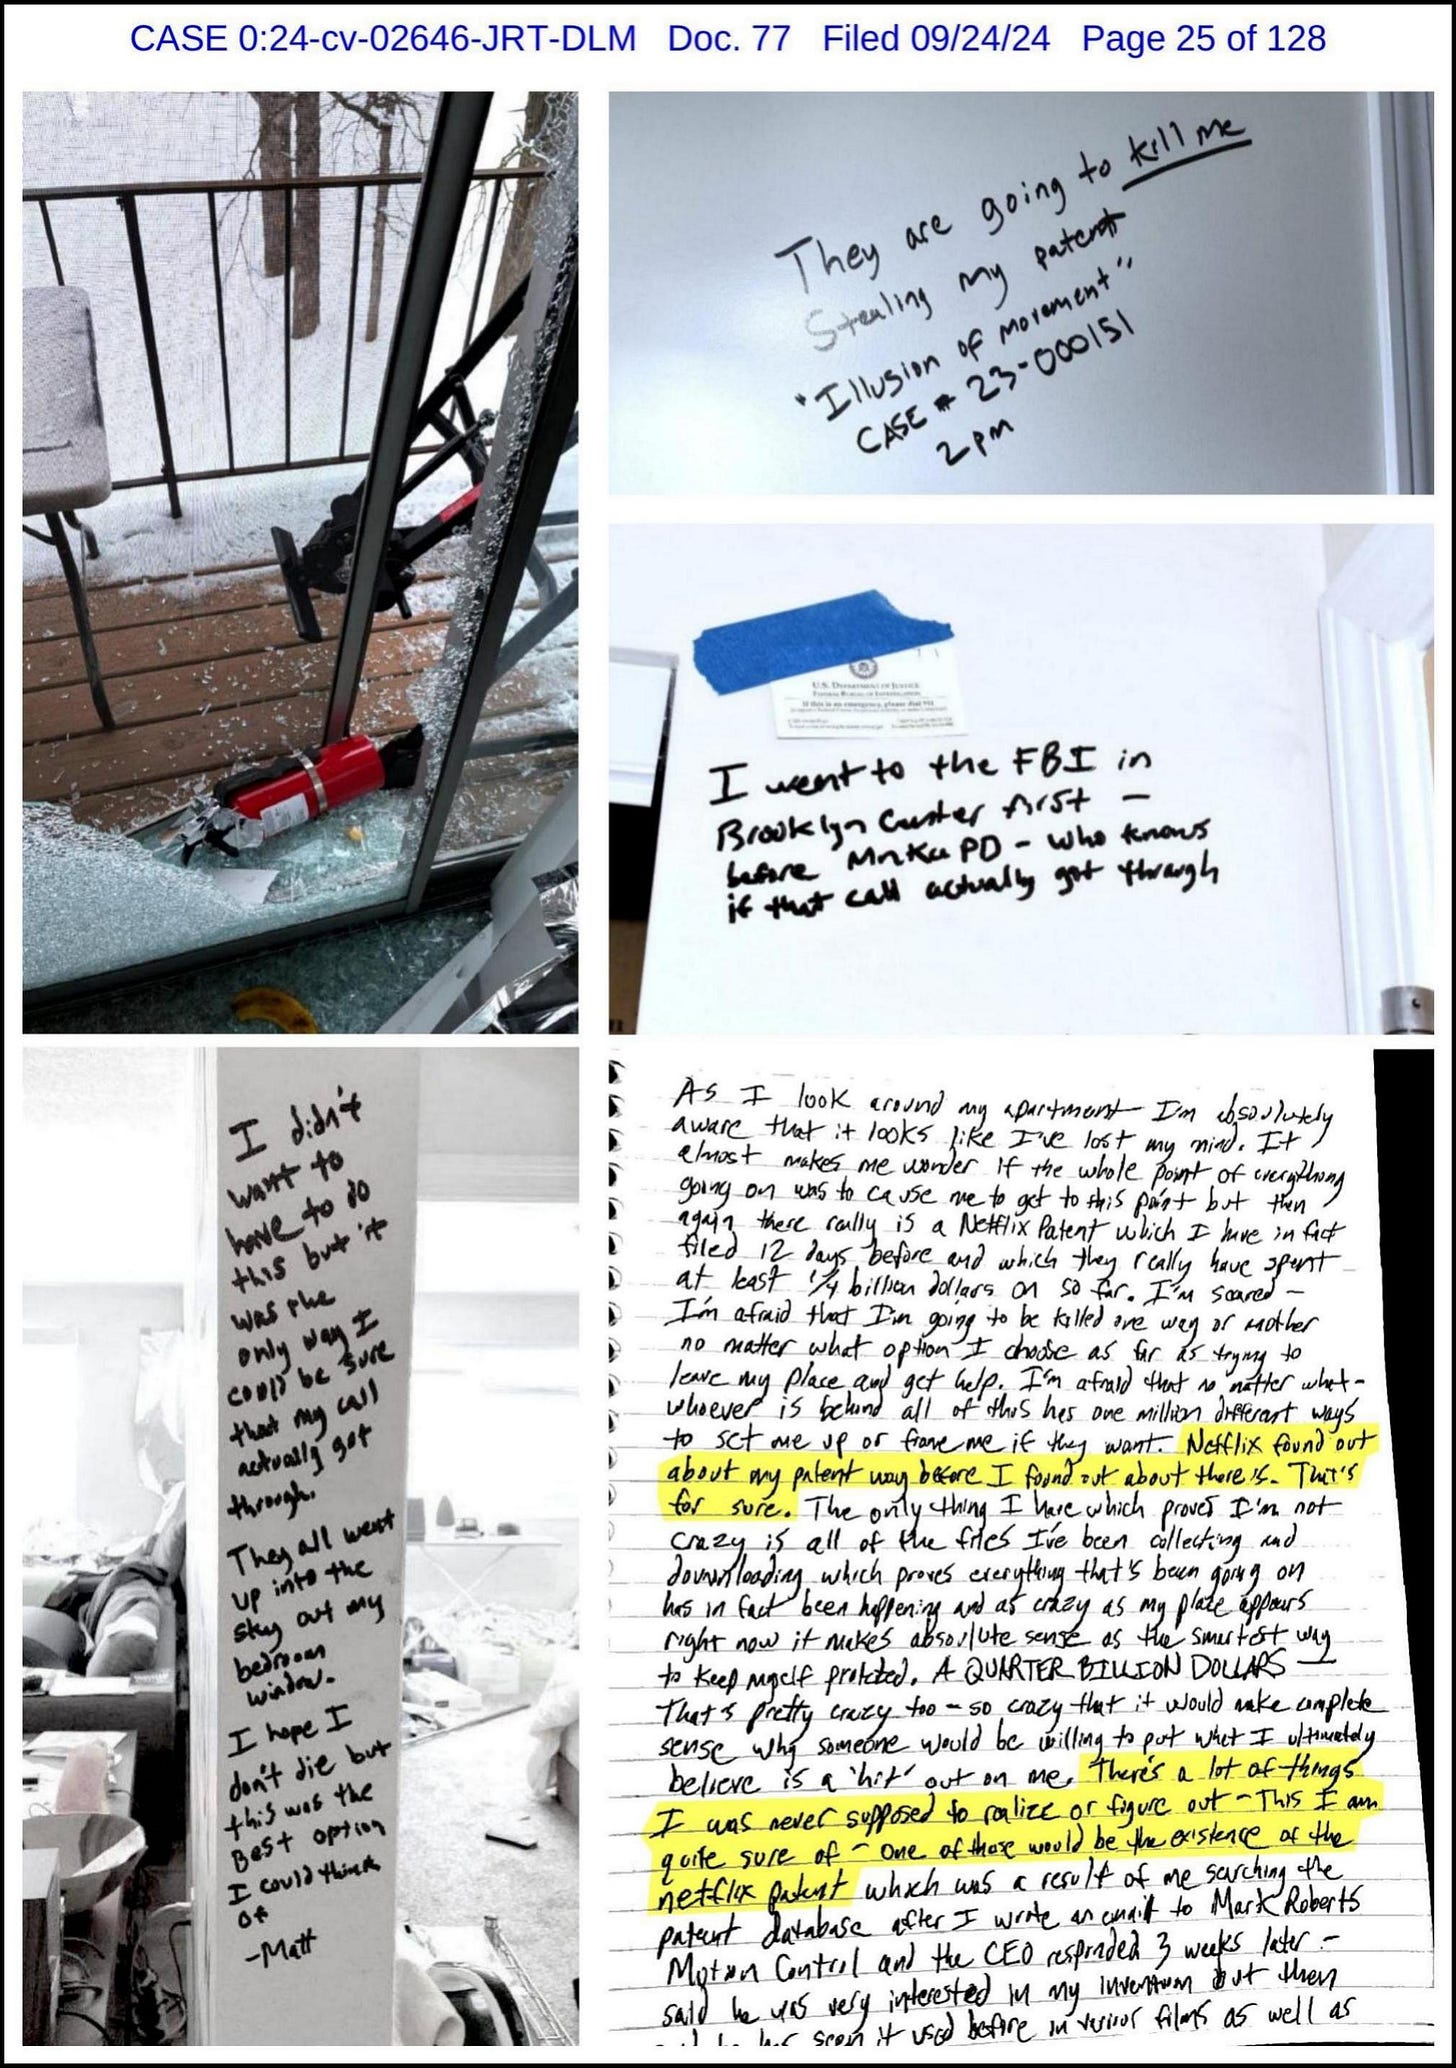 CASE 0:24-cv-02646-JRT-DLM Doc. 77 Filed 09/24/24 Page 25 of 128
They are going to kill me
Stealing my patent
"Illusion of movement"
CASE # 23-000151
2pm
U.S. DEPARTMENT OF JUSTICE
FEDERAL BUREAU OF INVESTIGATION
If this is an emergency, please dial 911
I went to the FBI in
Brooklyn Center first –
before Mnka PD – who knows
if that call actually got through
I didn't
want to
have to do
this but it
was the
only way I
could be sure
that my call
actually got
through.
They all went
up into the
sky out my
bedroom
window.
I hope I
don't die but
this was the
Best option
I could think
of
-Matt
As I look around my apartment I'm absolutely
aware that it looks like I've lost my mind. It
almost makes me wonder if the whole point of everything
going on was to cause me to get to this point but then
again there really is a Netflix Patent which I have in fact
filed 12 days before and which they really have spent
at least 1/4 billion dollars on so far. I'm scared –
I'm afraid that I'm going to be killed one way or another
no matter what option I choose as far as trying to
leave my place and get help. I'm afraid that no matter what –
whoever is behind all of this has one million different ways
to set me up or frame me if they want. Netflix found out
about my patent way before I found out about theirs. That's
for sure. The only thing I have which proves I'm not
crazy is all of the files I've been collecting and
downloading which proves everything that's been going on
has in fact been happening and as crazy as my place appears
right now it makes absolute sense as the smartest way
to keep myself protected. A QUARTER BILLION DOLLARS –
That's pretty crazy too – so crazy that it would make complete
sense why someone would be willing to put what I ultimately
believe is a 'hit' out on me. There's a lot of things
I was never supposed to realize or figure out – This I am
quite sure of – One of those would be the existence of the
netflix patent which was a result of me searching the
patent database after I wrote an email to Mark Roberts
Motion Control and the CEO responded 3 weeks later –
said he was very interested in my invention but then
said he has seen it used before in various films as well as